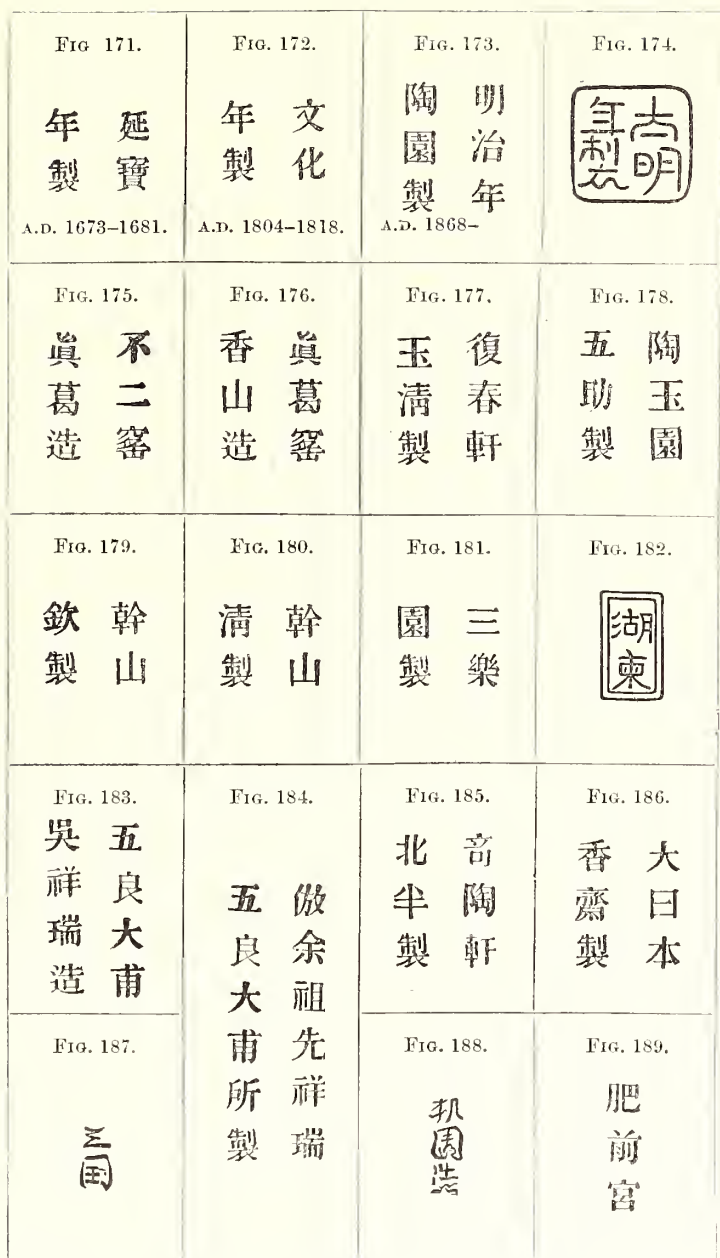 FIG 171.
延寶
年製
A.D. 1673–1681.
FIG. 172.
文化
年製
A.D. 1804–1818.
FIG. 173.
明治年
陶園製
A.D. 1868–
FIG. 174.
大明
年製
FIG. 175.
不二窰
眞葛造
FIG. 176.
眞葛窰
香山造
FIG. 177.
復春軒
玉淸製
FIG. 178.
陶玉園
五助製
FIG. 179.
幹山
欽製
FIG. 180.
幹山
淸製
FIG. 181.
三樂
園製
FIG. 182.
湖東
FIG. 183.
五良大甫
吳祥瑞造
FIG. 184.
倣余祖先祥瑞
五良大甫所製
FIG. 185.
竒陶軒
北半製
FIG. 186.
大日本
香齋製
FIG. 187.
FIG. 188.
FIG. 189.
肥前宮